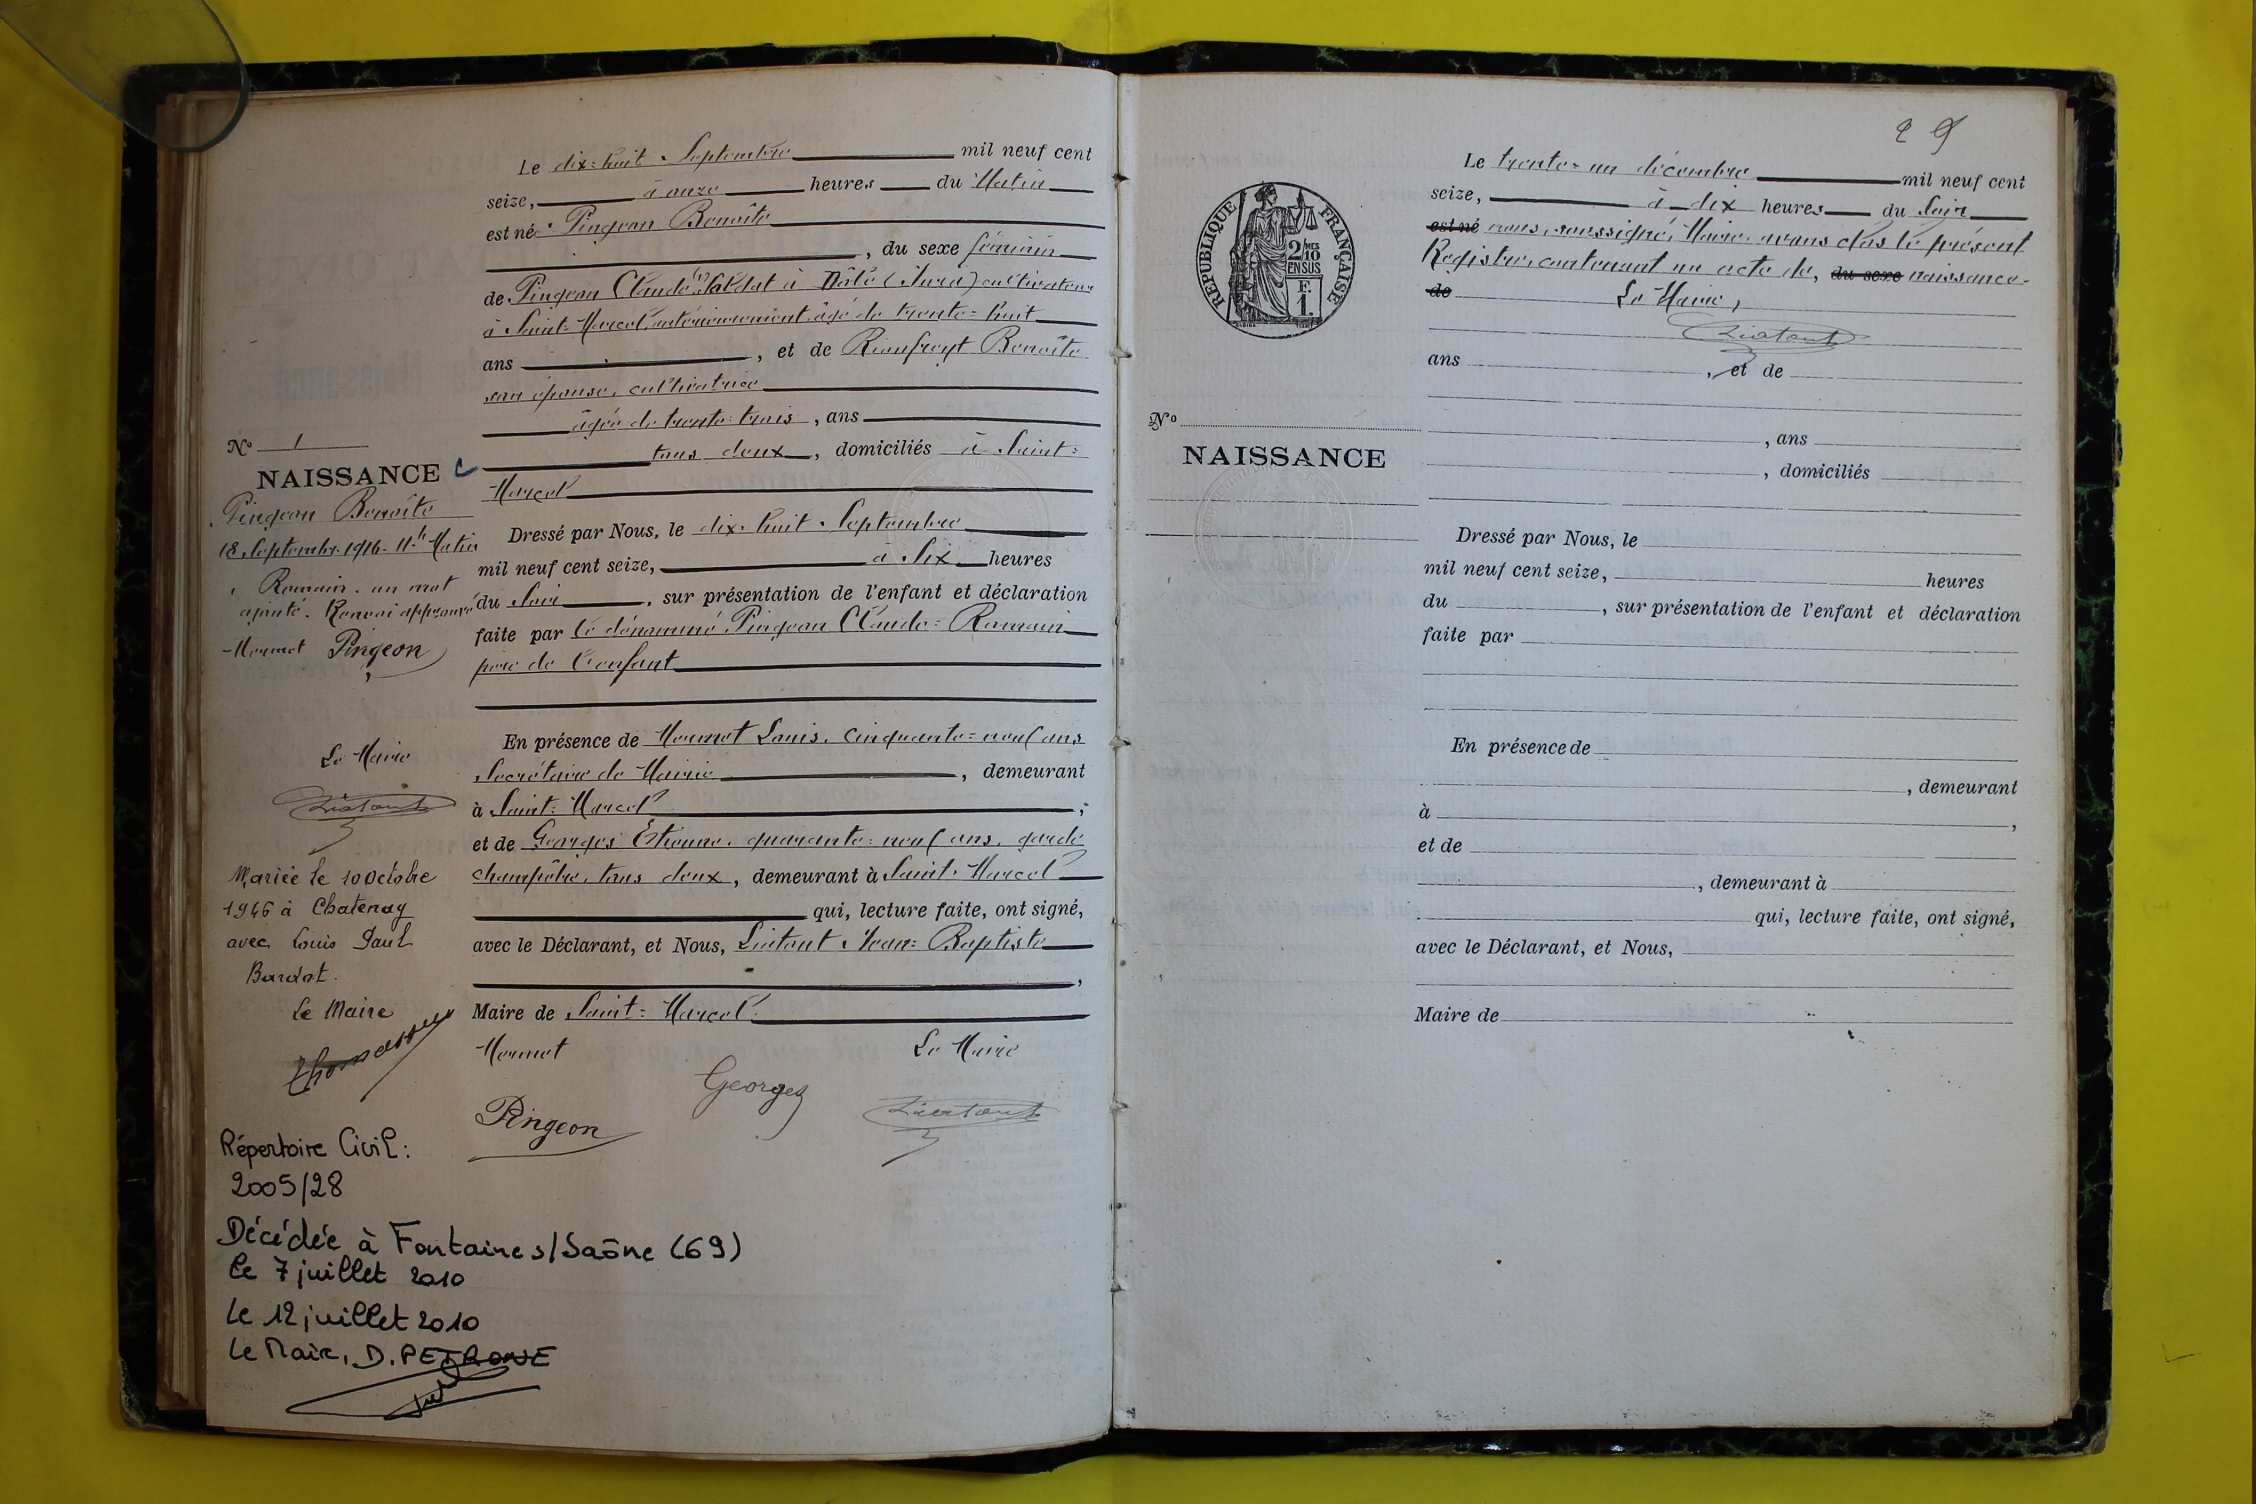 Le dix-huit Septembre mil neuf cent
seize, à onze heures du Matin
est né Pingeon Benoîte
, du sexe féminin
de Pingeon Claude Soldat à Dôle (Jura) cultivateur
à Saint-Marcel antérieurement âgé de trente-huit
ans , et de Rionfreyt Benoîte
son épouse, cultivatrice
âgée de trente-trois , ans
tous deux , domiciliés à Saint-
Marcel
Dressé par Nous, le dix-huit Septembre
mil neuf cent seize, à Six heures
du Soir , sur présentation de l'enfant et déclaration
faite par le dénommé Pingeon Claude-Romain
père de l'enfant
En présence de Mermet Louis, cinquante-neuf ans
Secrétaire de Mairie , demeurant
à Saint-Marcel ;
et de Georges Etienne, quarante-neuf ans, garde
champêtre, tous deux , demeurant à Saint-Marcel
qui, lecture faite, ont signé,
avec le Déclarant, et Nous, Liatout Jean-Baptiste
,
Maire de Saint-Marcel.
Mermet Le Maire
Georges
Pingeon Liatout
N° 1
NAISSANCE
Pingeon Benoîte
18 Septembre 1916 - 11 h Matin
Romain. un mot
ajouté. Renvoi approuvé
Mermet Pingeon
Le Maire
Liatout
Mariée le 10 octobre
1946 à Chatenay
avec Louis Paul
Bardot.
Le Maire
Répertoire Civil :
2005/28
Décédée à Fontaines/Saône (69)
le 7 juillet 2010
Le 12 juillet 2010
Le Maire, D. PETRONE
29
RÉPUBLIQUE FRANÇAISE
2/10 MES
EN SUS
F.
1.
N°
NAISSANCE
Le trente-un décembre mil neuf cent
seize, à dix heures du Soir
est né nous, soussigné, Maire, avons clos le présent
Registre, contenant un acte de, du sexe naissance.
de Le Maire,
Liatout
ans , et de
, ans
, domiciliés
Dressé par Nous, le
mil neuf cent seize, heures
du , sur présentation de l'enfant et déclaration
faite par
En présence de
, demeurant
à ,
et de
, demeurant à
qui, lecture faite, ont signé,
avec le Déclarant, et Nous,
Maire de